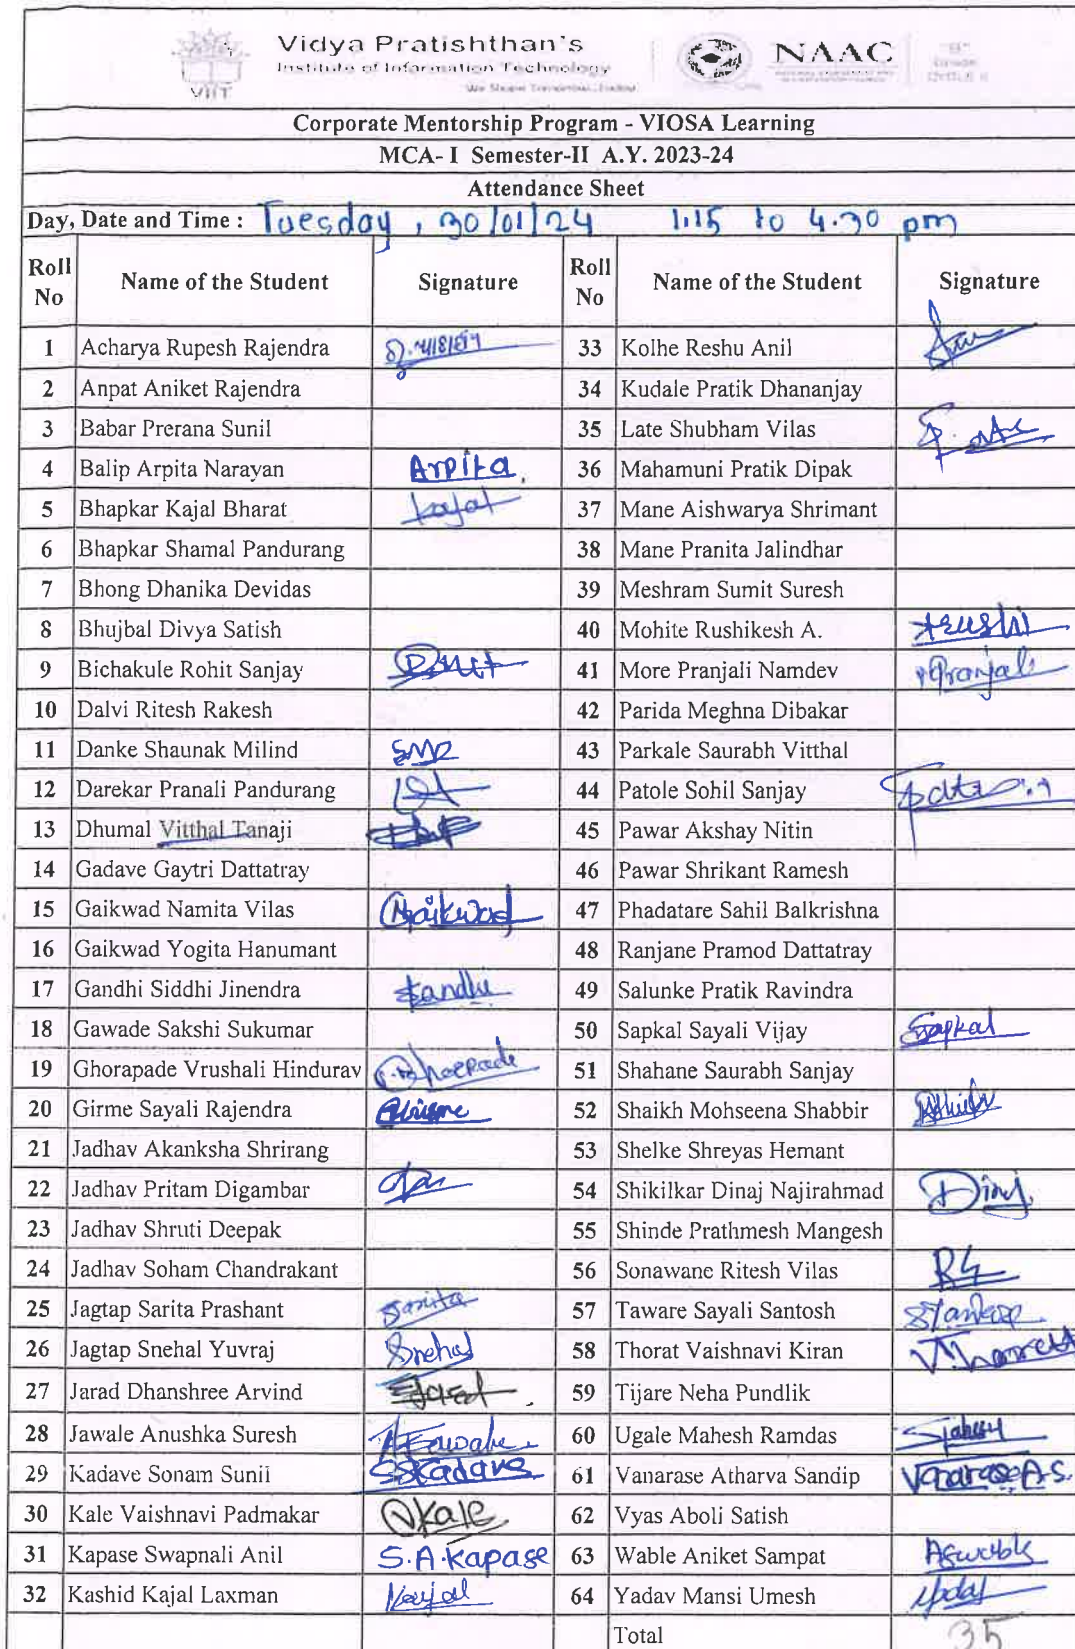 Vidya Pratishthan's
Institute of Information Technology
We Shape Tomorrow, Today
VIIT
NAAC
Corporate Mentorship Program - VIOSA Learning
MCA- I Semester-II A.Y. 2023-24
Attendance Sheet
Day, Date and Time : Tuesday , 30/01/24 1.15 to 4.30 pm
Roll No Name of the Student Signature Roll No Name of the Student Signature
1 Acharya Rupesh Rajendra 33 Kolhe Reshu Anil
2 Anpat Aniket Rajendra 34 Kudale Pratik Dhananjay
3 Babar Prerana Sunil 35 Late Shubham Vilas
4 Balip Arpita Narayan Arpita. 36 Mahamuni Pratik Dipak
5 Bhapkar Kajal Bharat kajal 37 Mane Aishwarya Shrimant
6 Bhapkar Shamal Pandurang 38 Mane Pranita Jalindhar
7 Bhong Dhanika Devidas 39 Meshram Sumit Suresh
8 Bhujbal Divya Satish 40 Mohite Rushikesh A.
9 Bichakule Rohit Sanjay 41 More Pranjali Namdev Pranjali
10 Dalvi Ritesh Rakesh 42 Parida Meghna Dibakar
11 Danke Shaunak Milind 43 Parkale Saurabh Vitthal
12 Darekar Pranali Pandurang 44 Patole Sohil Sanjay
13 Dhumal Vitthal Tanaji 45 Pawar Akshay Nitin
14 Gadave Gaytri Dattatray 46 Pawar Shrikant Ramesh
15 Gaikwad Namita Vilas Gaikwad 47 Phadatare Sahil Balkrishna
16 Gaikwad Yogita Hanumant 48 Ranjane Pramod Dattatray
17 Gandhi Siddhi Jinendra Gandhi 49 Salunke Pratik Ravindra
18 Gawade Sakshi Sukumar 50 Sapkal Sayali Vijay Sapkal
19 Ghorapade Vrushali Hindurav 51 Shahane Saurabh Sanjay
20 Girme Sayali Rajendra 52 Shaikh Mohseena Shabbir
21 Jadhav Akanksha Shrirang 53 Shelke Shreyas Hemant
22 Jadhav Pritam Digambar 54 Shikilkar Dinaj Najirahmad Dinaj
23 Jadhav Shruti Deepak 55 Shinde Prathmesh Mangesh
24 Jadhav Soham Chandrakant 56 Sonawane Ritesh Vilas RS
25 Jagtap Sarita Prashant Sarita 57 Taware Sayali Santosh
26 Jagtap Snehal Yuvraj Snehal 58 Thorat Vaishnavi Kiran
27 Jarad Dhanshree Arvind 59 Tijare Neha Pundlik
28 Jawale Anushka Suresh 60 Ugale Mahesh Ramdas
29 Kadave Sonam Sunil SSKadave 61 Vanarase Atharva Sandip Vanarase A.S.
30 Kale Vaishnavi Padmakar VKale 62 Vyas Aboli Satish
31 Kapase Swapnali Anil S.A.Kapase 63 Wable Aniket Sampat
32 Kashid Kajal Laxman Kajal 64 Yadav Mansi Umesh
Total 35